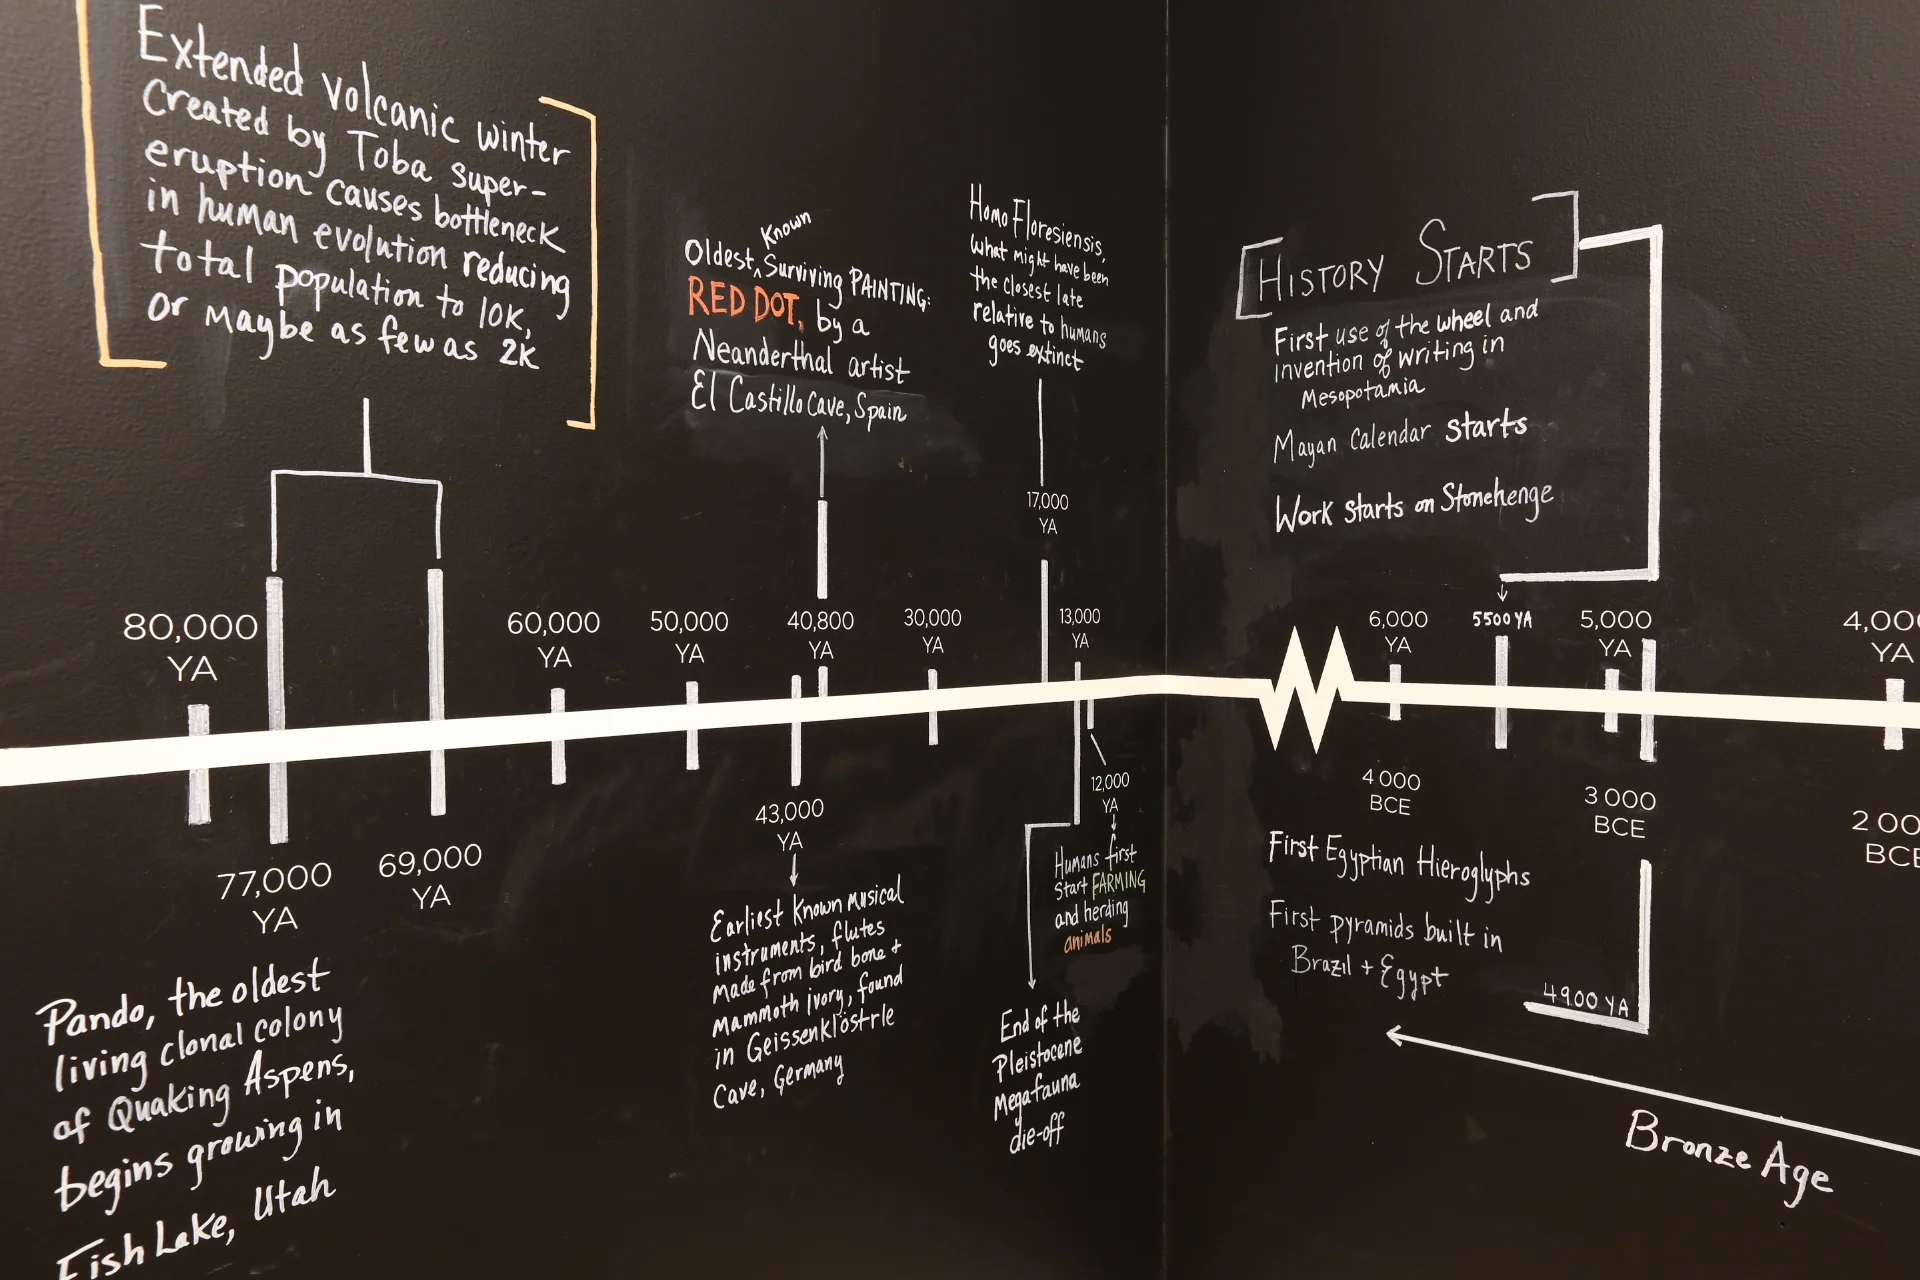 Extended Volcanic winter
Created by Toba super-
eruption causes bottleneck
in human evolution reducing
total population to 10K,
or maybe as few as 2K
Known
Oldest ^ Surviving PAINTING:
RED DOT, by a
Neanderthal artist
El Castillo Cave, Spain
Homo Floresiensis,
what might have been
the closest late
relative to humans
goes extinct
17,000
YA
[HISTORY STARTS]
First use of the wheel and
invention of writing in
Mesopotamia
Mayan Calendar starts
Work starts on Stonehenge
80,000
YA
60,000
YA
50,000
YA
40,800
YA
30,000
YA
13,000
YA
6,000
YA
5500 YA
5,000
YA
4,00
YA
77,000
YA
69,000
YA
43,000
YA
12,000
YA
4 000
BCE
3 000
BCE
2 00
BCE
Pando, the oldest
living clonal colony
of Quaking Aspens,
begins growing in
Fish Lake, Utah
Earliest Known Musical
instruments, flutes
Made from bird bone +
Mammoth ivory, found
in Geissenklöstrle
Cave, Germany
Humans first
start FARMING
and herding
animals
End of the
Pleistocene
Megafauna
die-off
First Egyptian Hieroglyphs
First pyramids built in
Brazil + Egypt
4900 YA
Bronze Age